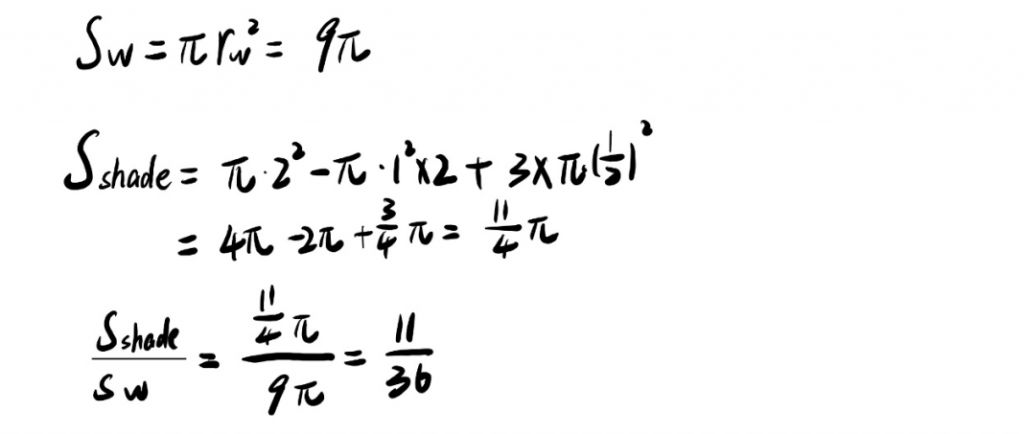 S_w = πr_w² = 9π
S_shade = π·2² - π·1²×2 + 3×π(1/2)²
= 4π - 2π + 3/4 π = 11/4 π
S_shade/S_w = (11/4 π)/(9π) = 11/36